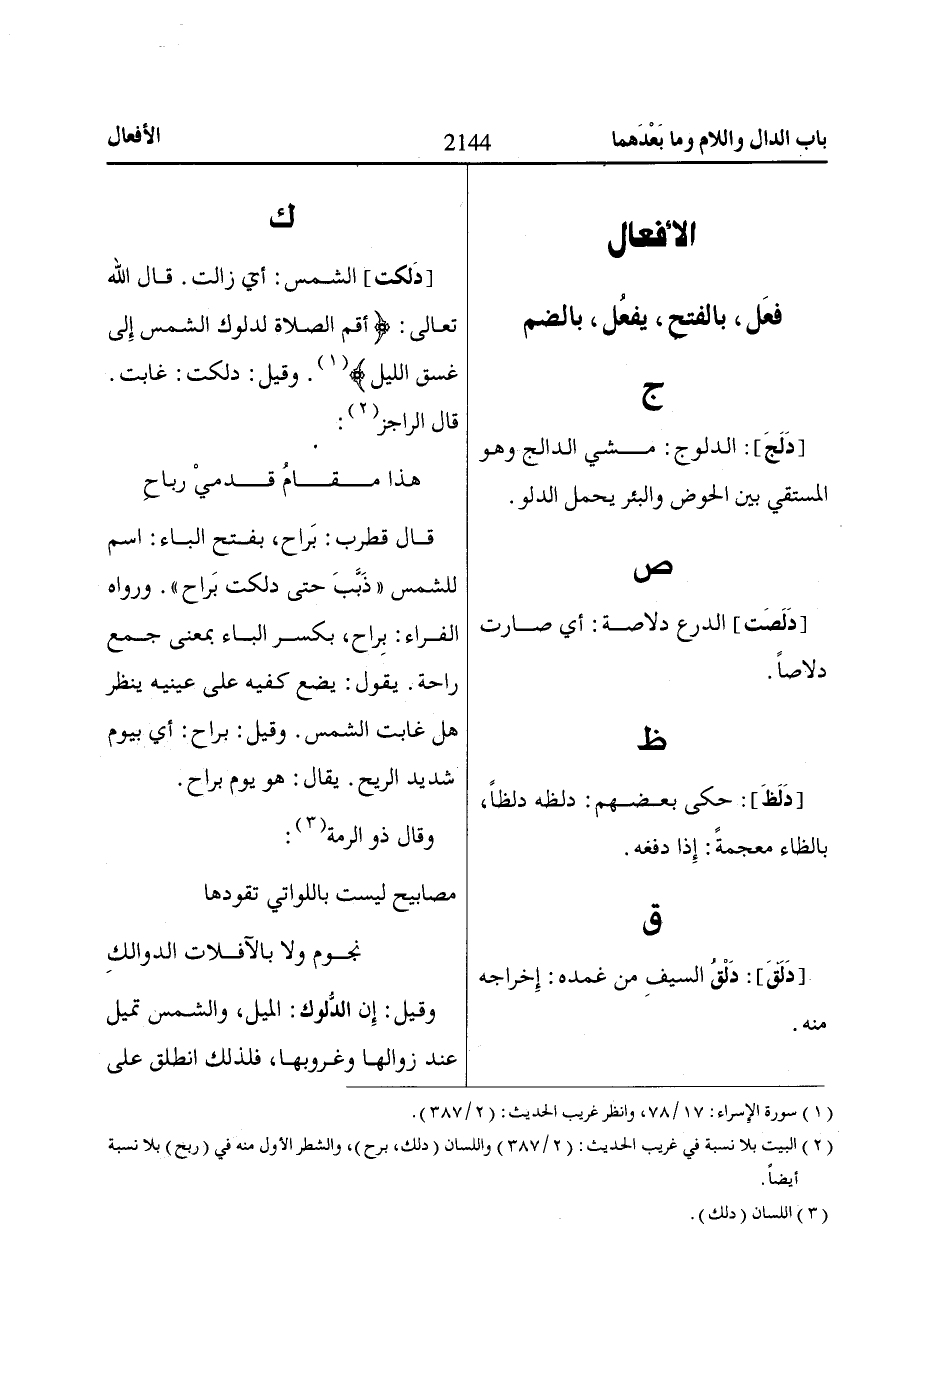 باب الدال واللام وما بَعْدَهما
2144
الأفعال
الأفعال
فعَل، بالفتح، يفعُل، بالضم
ج
[دَلَجَ]: الدلوج: مشي الدالج وهو
المستقي بين الحوض والبئر يحمل الدلو.
ص
[دَلَصَت] الدرع دلاصة: أي صارت
دلاصاً.
ظ
[دَلَظَ]: حكى بعضهم: دلظه دلظاً،
بالظاء معجمةً: إذا دفعه.
ق
[دَلَقَ]: دَلْقُ السيفِ من غمده: إخراجه
منه.
ك
[دَلَكت] الشمس: أي زالت. قال الله
تعالى: ﴿أقم الصلاة لدلوك الشمس إلى
غسق الليل﴾(١). وقيل: دلكت: غابت.
قال الراجز(٢):
هذا مقامُ قدميْ رباحِ
قال قطرب: بَراح، بفتح الباء: اسم
للشمس «ذَبَّبَ حتى دلكت بَراح». ورواه
الفراء: بِراح، بكسر الباء بمعنى جمع
راحة. يقول: يضع كفيه على عينيه ينظر
هل غابت الشمس. وقيل: براح: أي بيوم
شديد الريح. يقال: هو يوم براح.
وقال ذو الرمة(٣):
مصابيح ليست باللواتي تقودها
نجوم ولا بالآفلات الدوالكِ
وقيل: إن الدُّلوك: الميل، والشمس تميل
عند زوالها وغروبها، فلذلك انطلق على
(١) سورة الإسراء: ٧٨/١٧، وانظر غريب الحديث: (٣٨٧/٢).
(٢) البيت بلا نسبة في غريب الحديث: (٣٨٧/٢) واللسان (دلك، برح)، والشطر الأول منه في (ربح) بلا نسبة
أيضاً.
(٣) اللسان (دلك).